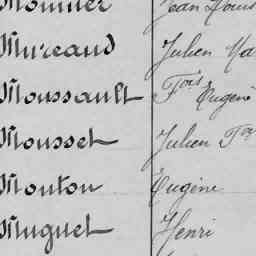 Monnier Jean Louis
Mureaud Julien Ma
Moussault Fois Eugene
Mousset Julien Fois
Mouton Eugène
Muguet Henri